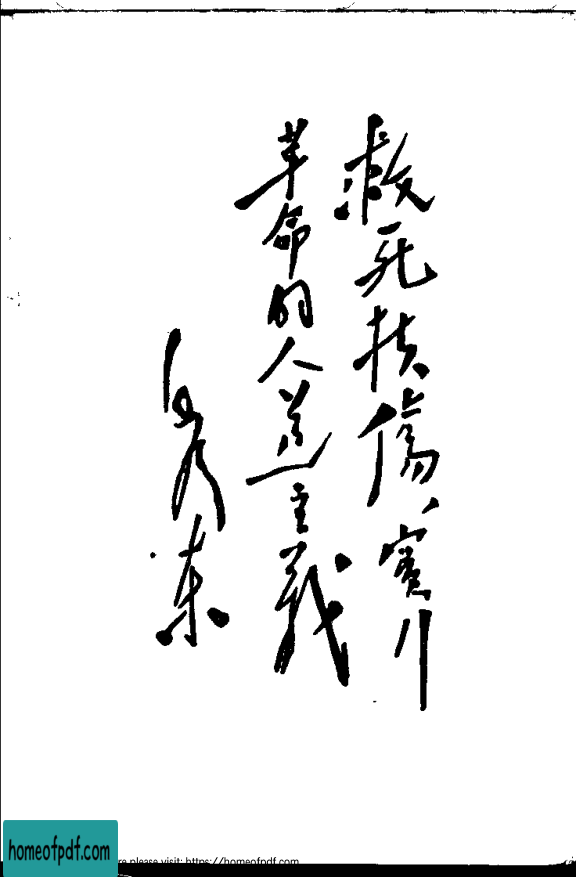 救死扶傷、實行
革命的人道主義
毛澤東
homeofpdf.com
re please visit: https://homeofpdf.com